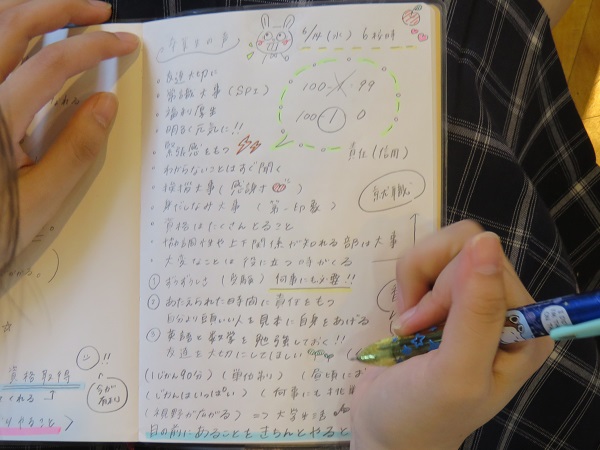 卒業生の声
6/14(水) 6校時
・友達大切に
・常識大事(SPI)
・福利厚生
・明るく元気に!!
・緊張感をもつ
・わからないことはすぐ聞く
・挨拶大事(先輩方)
・身だしなみ大事(第一印象)
・資格はたくさんとること
・協調性や上下関係が知れる部は大事
・大変なことは役に立つ時がくる
① ずうずうしさ(受験) 何事にも必要!!
② あたえられた時間に責任をもつ
自分より良い人を見本に自身をあげる
③ 英語と数学を勉強しておく!!
友達を大切にしてほしい
(じかん90分)(単位あり)(昼頃に
(じかんはいっぱい)(何事にも挑戦
(視野がひろがる) => 大学生活
目の前にあることをきちんとやると
100 × 99
100 ① 0
責任(信用)
就職
資格取得
!!
くれる
やること